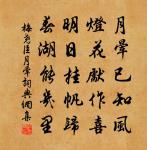 月暈已知風
燈花獻作喜
明日挂帆歸
春湖能幾里
梅堯臣月暈詞典網集